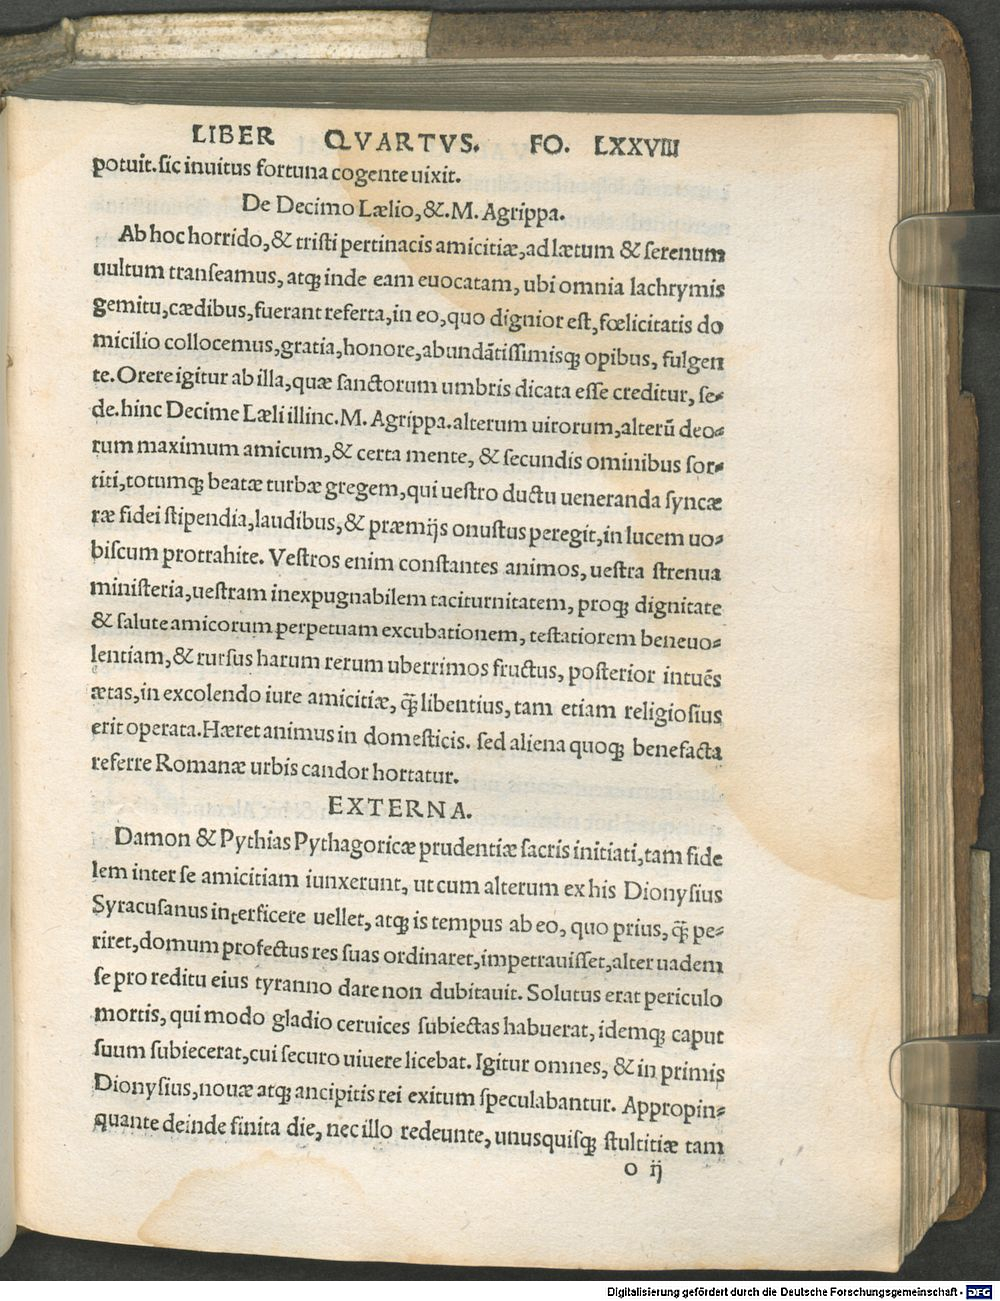 LIBER QVARTVS. FO. LXXVIII
potuit. sic inuitus fortuna cogente uixit.
De Decimo Lælio, &. M. Agrippa.
Ab hoc horrido, & tristi pertinacis amicitiæ, ad lætum & serenum
uultum transeamus, atqꝫ inde eam euocatam, ubi omnia lachrymis
gemitu, cædibus, fuerant referta, in eo, quo dignior est, fœlicitatis do
micilio collocemus, gratia, honore, abundātissimisqꝫ opibus, fulgen
te. Orere igitur ab illa, quæ sanctorum umbris dicata esse creditur, se⸗
de. hinc Decime Læli illinc. M. Agrippa. alterum uirorum, alterū deo⸗
rum maximum amicum, & certa mente, & secundis ominibus sor⸗
titi, totumqꝫ beatæ turbæ gregem, qui uestro ductu ueneranda syncæ
ræ fidei stipendia, laudibus, & præmijs onustus peregit, in lucem uo⸗
biscum protrahite. Vestros enim constantes animos, uestra strenua
ministeria, uestram inexpugnabilem taciturnitatem, proqꝫ dignitate
& salute amicorum perpetuam excubationem, testatiorem beneuo⸗
lentiam, & rursus harum rerum uberrimos fructus, posterior intuēs
ætas, in excolendo iure amicitiæ, q̄ꝫ libentius, tam etiam religiosius
erit operata. Hæret animus in domesticis. sed aliena quoqꝫ benefacta
referre Romanæ urbis candor hortatur.
EXTERNA.
Damon & Pythias Pythagoricæ prudentiæ sacris initiati, tam fide
lem inter se amicitiam iunxerunt, ut cum alterum ex his Dionysius
Syracusanus interficere uellet, atqꝫ is tempus ab eo, quo prius, q̄ꝫ pe⸗
riret, domum profectus res suas ordinaret, impetrauisset, alter uadem
se pro reditu eius tyranno dare non dubitauit. Solutus erat periculo
mortis, qui modo gladio ceruices subiectas habuerat, idemqꝫ caput
suum subiecerat, cui securo uiuere licebat. Igitur omnes, & in primis
Dionysius, nouæ atqꝫ ancipitis rei exitum speculabantur. Appropin⸗
quante deinde finita die, nec illo redeunte, unusquisqꝫ stultitiæ tam
o ij
Digitalisierung gefördert durch die Deutsche Forschungsgemeinschaft - DFG